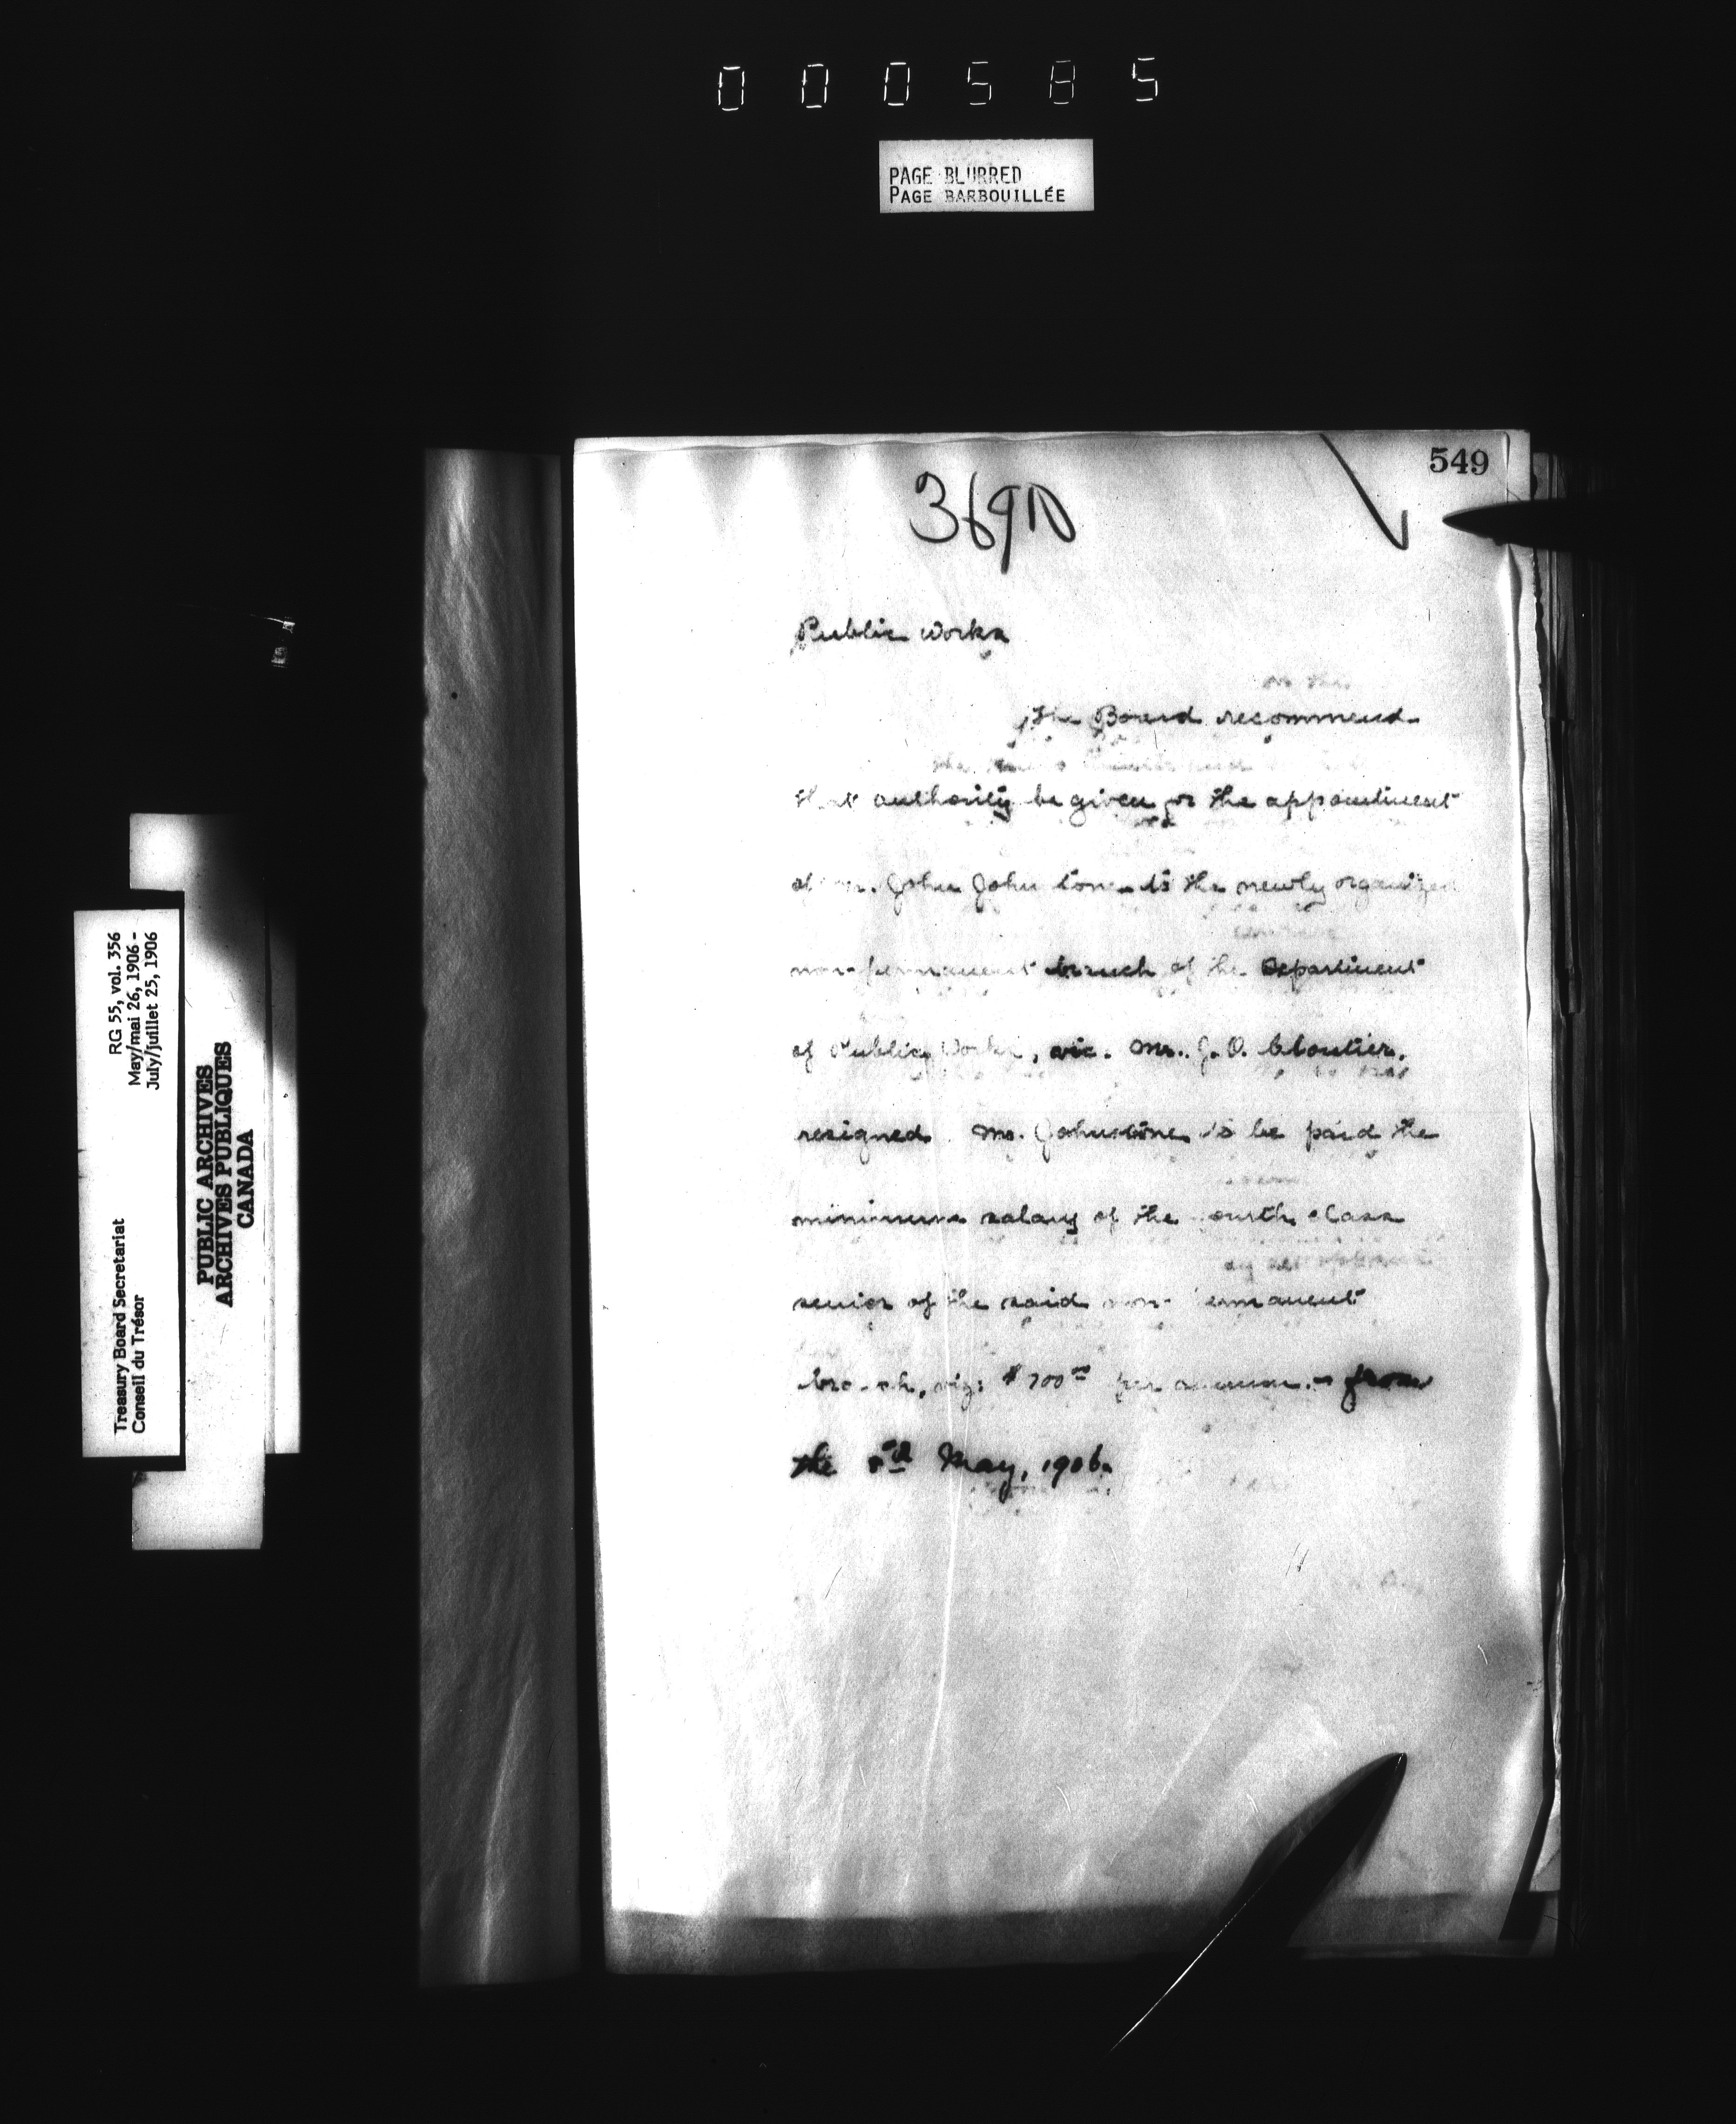 000585
PAGE BLURRED
PAGE BARBOUILLÉE
549
Public Works
on the
The Board recommend
that authority be given for the appointment
of Mr. John Johnstone to the newly organized
non-permanent branch of the Department
of Public Works, vic. Mr. J. O. Cloutier,
resigned. Mr. Johnstone to be paid the
minimum salary of the fourth class
senior of the said non-permanent
branch, viz: $700 00 per annum. - from
the May, 1906.
RG 55, vol. 356
May/mai 26, 1906 -
July/juillet 25, 1906
Treasury Board Secretariat
Conseil du Trésor
PUBLIC ARCHIVES
ARCHIVES PUBLIQUES
CANADA